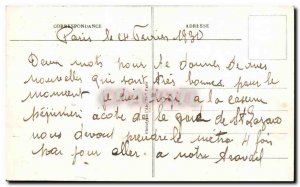 CORRESPONDANCE ADRESSE
Paris le 14 Fevrier 1930
Deux mots pour te donner de mes
nouvelles qui sont très bonnes pour le
moment je suis a la caserne
pépinière a coté de la gare de St Lazare
nous devont prendre le métro 4 fois
par jour aller a notre travail